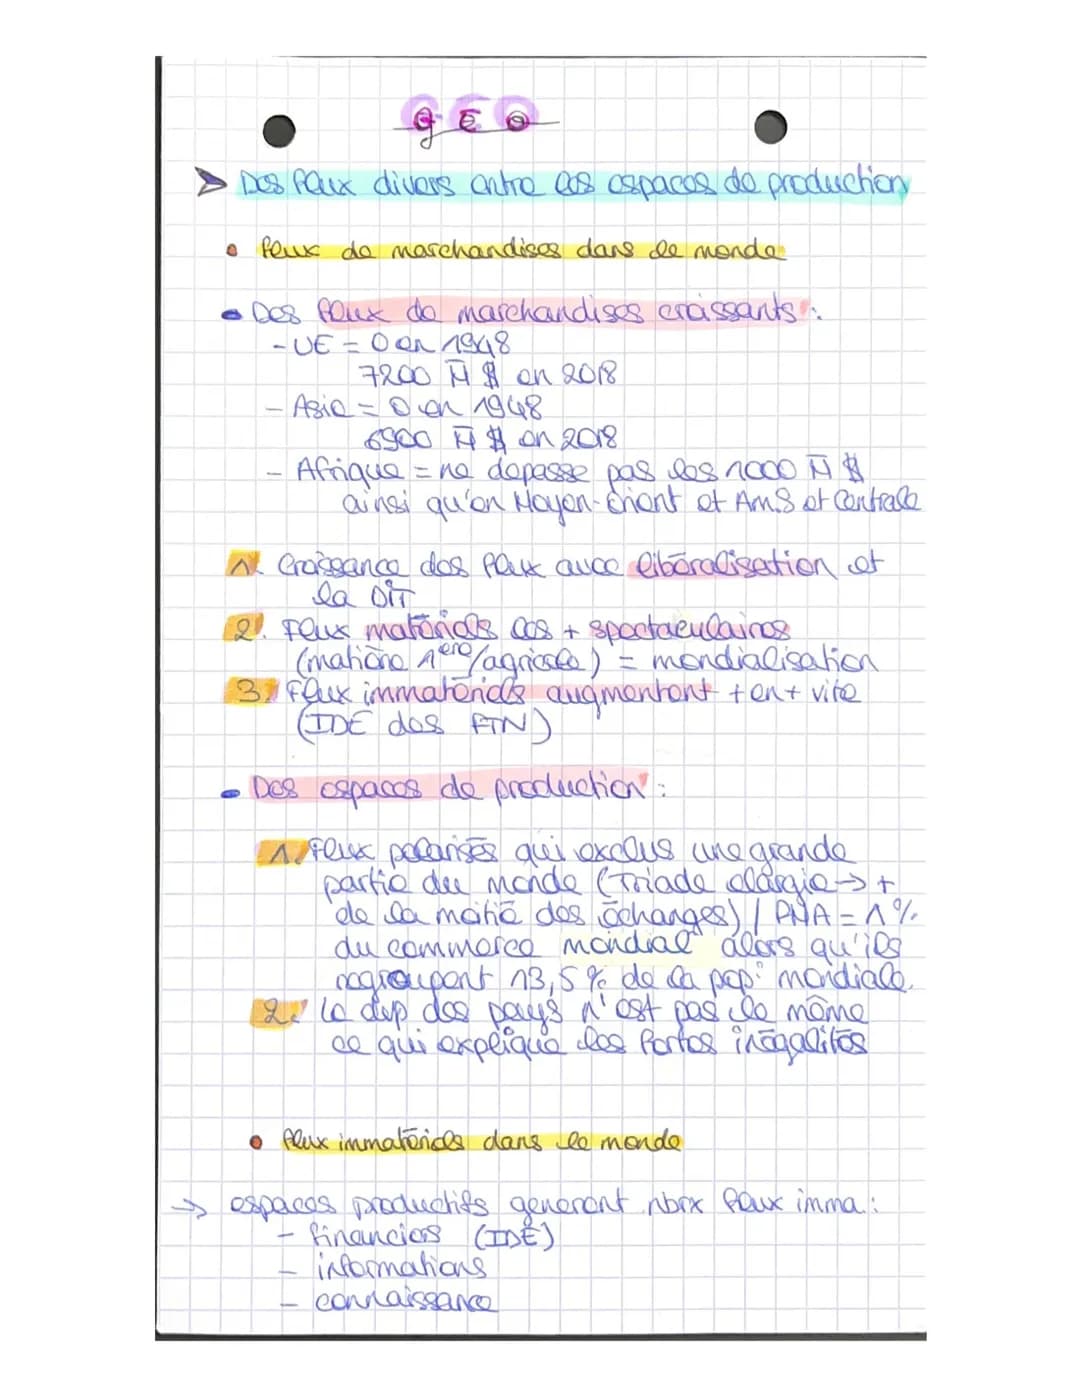 GEO
➤ Des flux divers entre les espaces de production
• flux de marchandises dans le monde
- Des flux de marchandises croissants :
- UE = 0 en 1948
7200 M̄ $ en 2018
- Asie = 0 en 1948
6900 M̄ $ en 2018
- Afrique = ne depasse pas les 1000 M̄ $
ainsi qu'en Moyen-Orient et Am.S et Centrale
1. Croissance des flux avec libéralisation et
la DIT
2. Flux matériels les + spectaculaires
(matière 1ère/agricole) = mondialisation
3. Flux immatériels augmentent + en + vite
(IDE des FTN)
- Des espaces de production :
1. Flux polarisés qui exclus une grande
partie du monde (Triade élargie → +
de la moitié des échanges) / PMA = 1%
du commerce mondial alors qu'ils
regroupent 13,5 % de la pop° mondiale.
2. Le dvp des pays n'est pas le même
ce qui explique les fortes inégalités
• flux immatériels dans le monde
→ espaces productifs generent nbrx flux imma. :
- financiers (IDE)
- informations
- connaissance